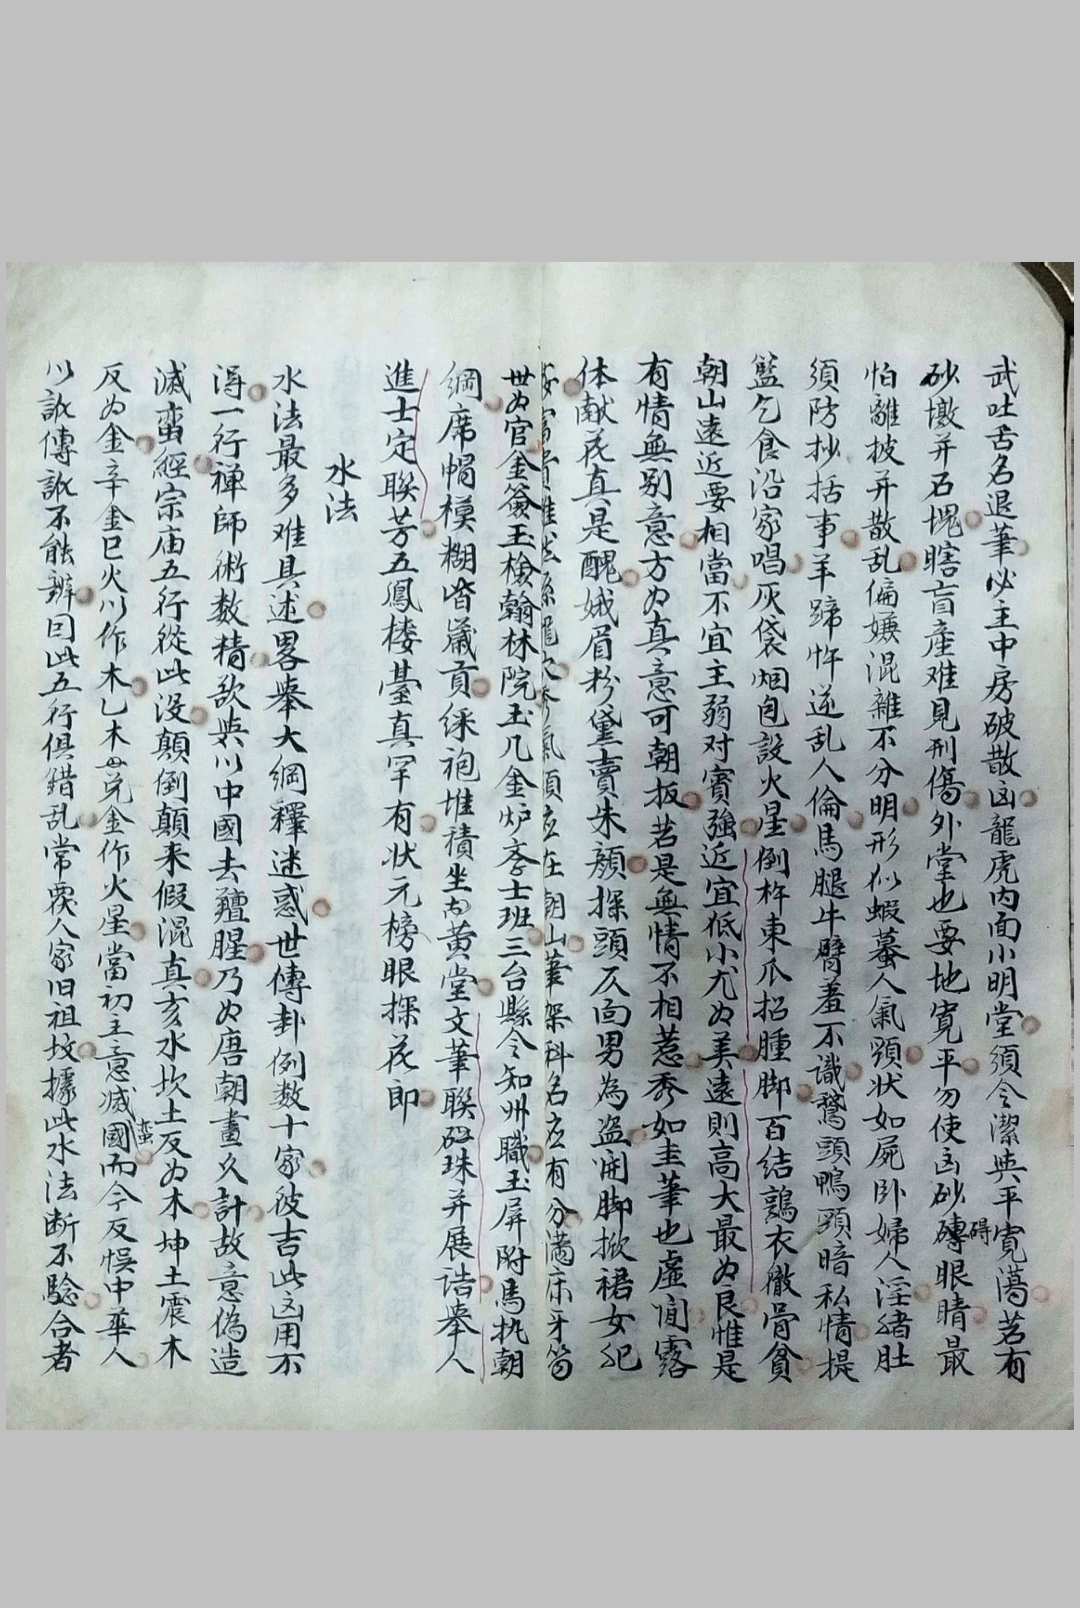 武吐舌名退筆必主中房破散凶龍虎内面小明堂須令潔與平寬蕩若有
砂墩并石塊瞎盲產难見刑傷外堂也要地寬平勿使凶砂礙眼睛最
怕離披并散乱偏嫌混雜不分明形似蝦蟇人氣顎状如屍卧婦人淫绪肚
須防抄括事羊蹄忤逆乱人倫馬腿牛臂羞不識鵞頭鴨頸暗私情提
籃乞食沿家唱灰袋烟包設火星倒杵東瓜招腫脚百結鶉衣徹骨貧
朝山遠近要相當不宜主弱对賓強近宜低小尤为美遠則高大最为良惟是
有情無别意方为真意可朝扳若是無情不相惹秀如圭筆也虛间露
体献花真是醜娥眉粉黛賣朱顏探頭仄面男為盗開脚掀裙女犯
在朝山筆架科名应有分滿床牙笏
世为官金簽玉檢翰林院玉几金炉李士班三台縣令知州職玉屏附馬执朝
綱席帽模糊皆歲貢綵袍堆積坐黄堂文筆聯砚珠并展誥舉人
進士定联芳五鳳楼臺真罕有状元榜眼探花郎
水法
水法最多难具述畧舉大綱釋迷惑世傳卦例数十家彼吉此凶用不
得一行禅師術数精欲與川中國去羶腥乃为唐朝畫久計故意偽造
滅蛮經宗庙五行從此没顛倒顛来假混真亥水坎土反为木坤土震木
反为金辛金巳火川作木乙木母兑金作火星當初主意滅蛮國而今反悞中華人
以訛傳訛不能辨曰此五行俱錯乱常覆人家旧祖坟據此水法断不驗合者